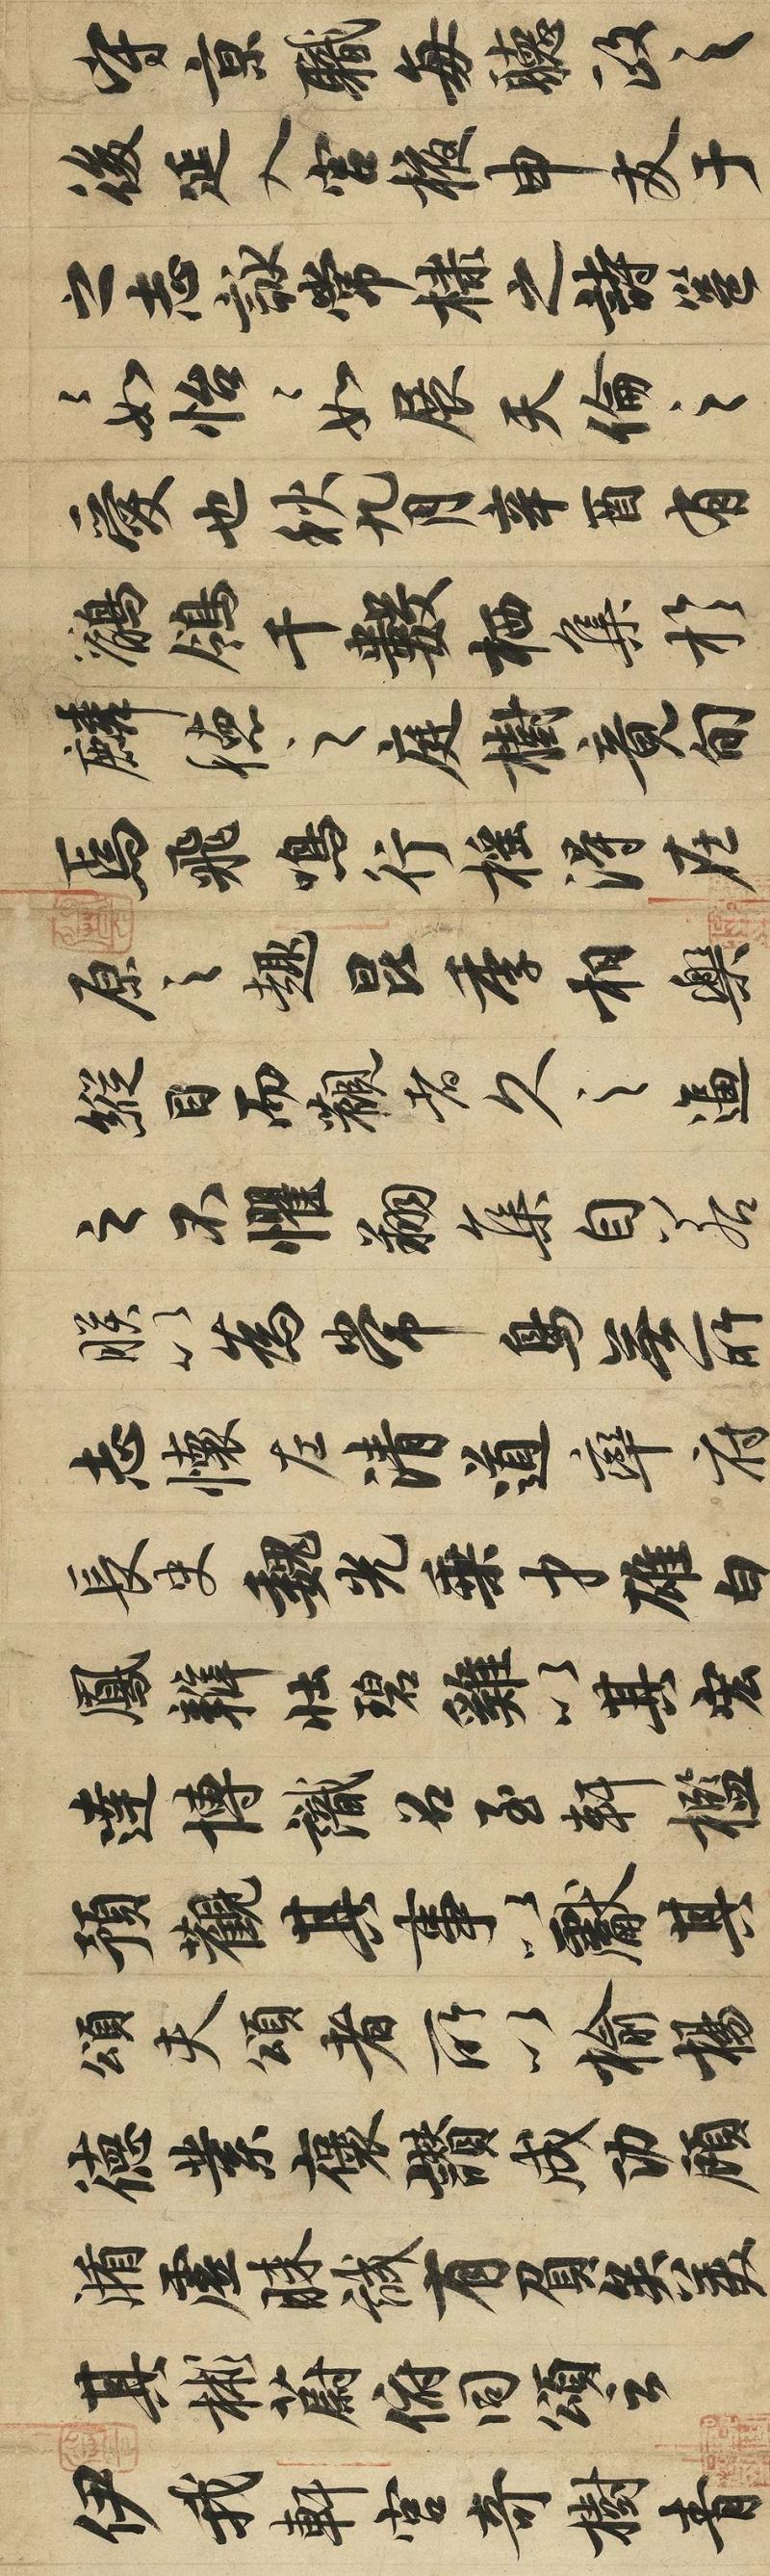 守京職每聽政之
後延入宮掖申友于
之志詠棠棣之詩邕
〻如怡〻如展天倫之
愛也秋九月辛酉有
鶺鴒千數栖集於
麟德之庭樹竟旬
焉飛鳴行搖得在
原之趣昆季相樂
縱目而觀者久之逼
之不懼翔集自若
朕以為常鳥無所
志懷左清道率府
長史魏光乘才雄白
鳳辯壯碧雞以其宏
達博識召至軒檻
預觀其事以獻其
頌夫頌者所以揄揚
德業褒讚成功顧
循虛昧誠有負矣美
其彬蔚俯同頌云
伊我軒宮奇樹青